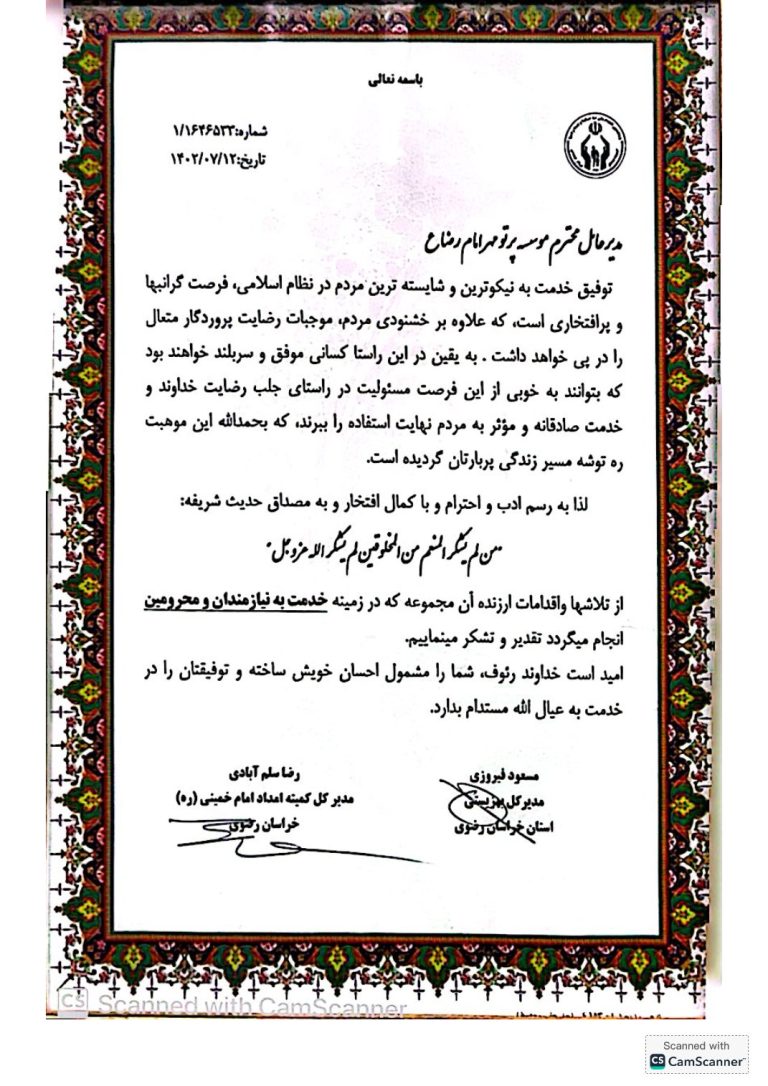 باسمه تعالی
شماره:۱/۱۶۴۶۵۳۳
تاریخ:۱۴۰۲/۰۷/۱۲
مدیرعامل محترم موسسه پرتو مهر امام رضا ع
توفیق خدمت به نیکوترین و شایسته ترین مردم در نظام اسلامی، فرصت گرانبها
و پرافتخاری است، که علاوه بر خشنودی مردم، موجبات رضایت پروردگار متعال
را در پی خواهد داشت . به یقین در این راستا کسانی موفق و سربلند خواهند بود
که بتوانند به خوبی از این فرصت مسئولیت در راستای جلب رضایت خداوند و
خدمت صادقانه و مؤثر به مردم نهایت استفاده را ببرند، که بحمدالله این موهبت
ره توشه مسیر زندگی پربارتان گردیده است.
لذا به رسم ادب و احترام و با کمال افتخار و به مصداق حدیث شریفه:
"من لم یشکر المنعم من المخلوقین لم یشکر الله عزوجل"
از تلاشها واقدامات ارزنده آن مجموعه که در زمینه خدمت به نیازمندان و محرومین
انجام میگردد تقدیر و تشکر مینماییم.
امید است خداوند رئوف، شما را مشمول احسان خویش ساخته و توفیقتان را در
خدمت به عیال الله مستدام بدارد.
مسعود فیروزی
مدیرکل بهزیستی
استان خراسان رضوی
رضا سلم آبادی
مدیر کل کمیته امداد امام خمینی (ره)
خراسان رضوی
CS Scanned with CamScanner
Scanned with
CS CamScanner